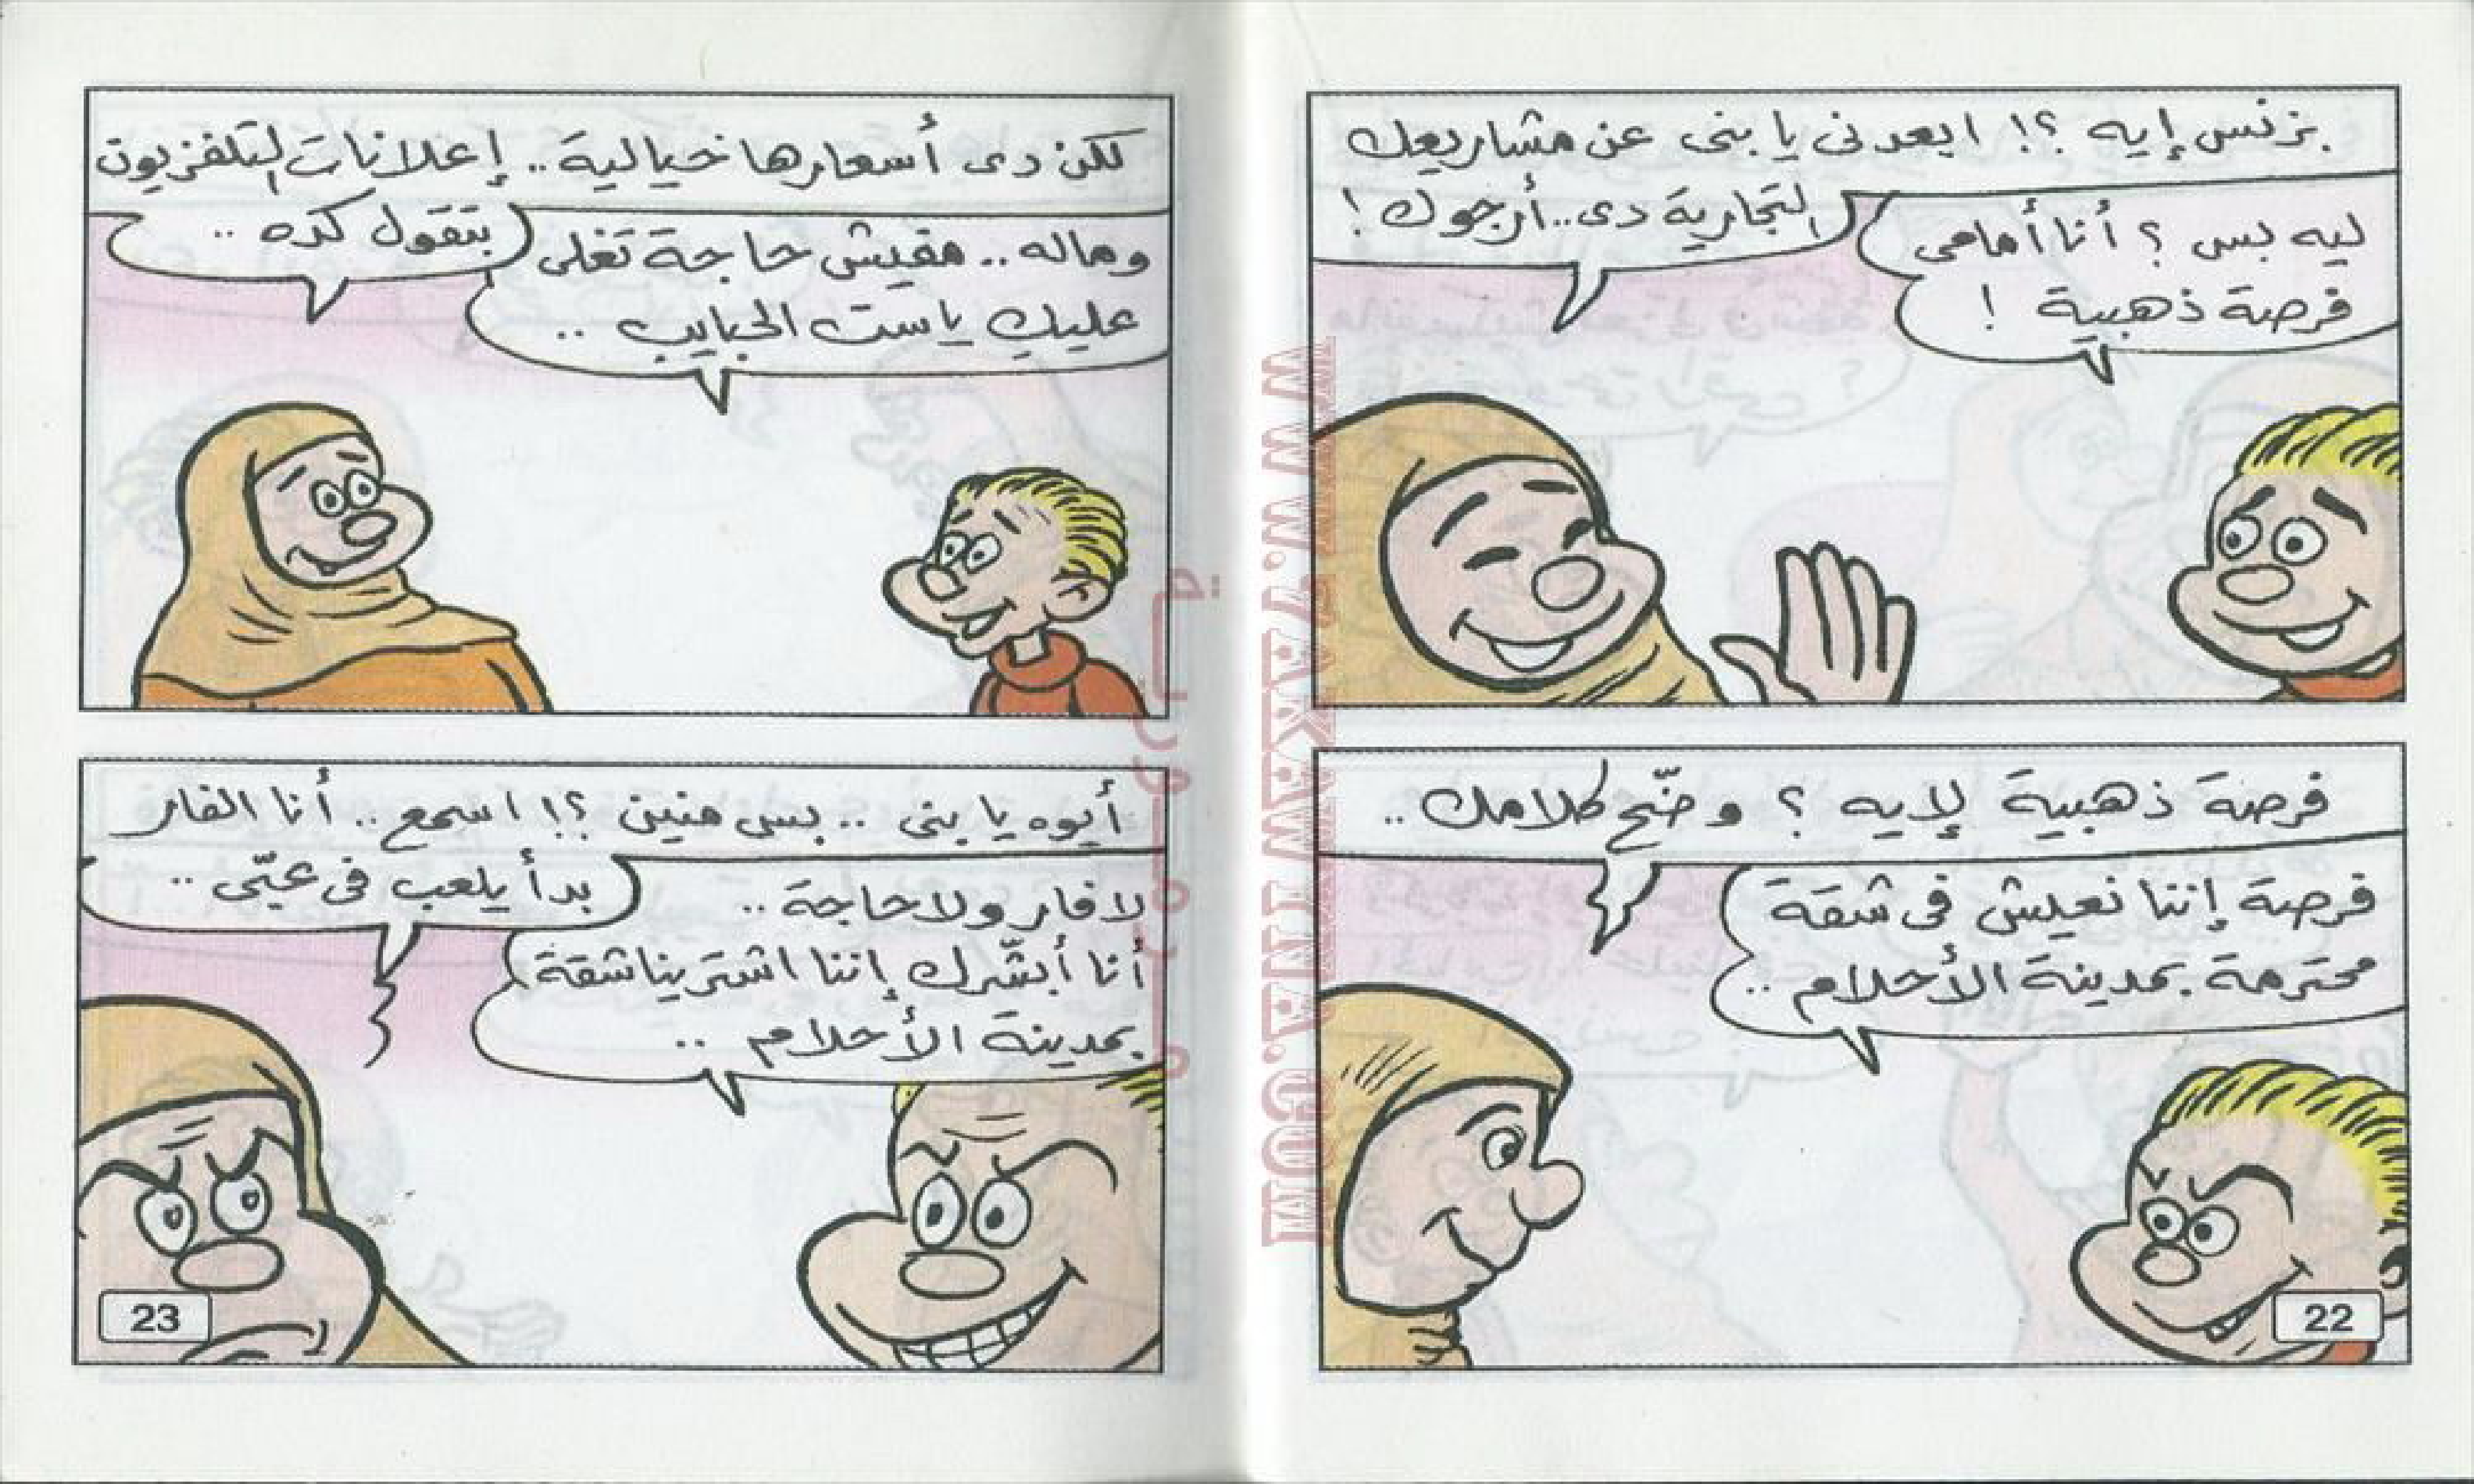 بزنس إيه ؟! ابعدنى يا بنى عن مشاريعك
التجارية دى.. أرجوك !
ليه بس ؟ أنا أمامى
فرصة ذهبية !
فرصة ذهبية لإيه ؟ وضّح كلامك ..
فرصة إننا نعيش فى شقة
محترمة بمدينة الأحلام ..
22
لكن دى أسعارها خيالية .. إعلانات التلفزيون
بتقول كده ..
وماله .. مفيش حاجة تغلى
عليكِ يا ست الحبايب ..
أيوه يا بنى .. بس منين ؟! اسمع .. أنا الفار
بدأ يلعب فى عبّى ..
لا فار ولا حاجة ..
أنا أبشّرك إننا اشترينا شقة
بمدينة الأحلام ..
23